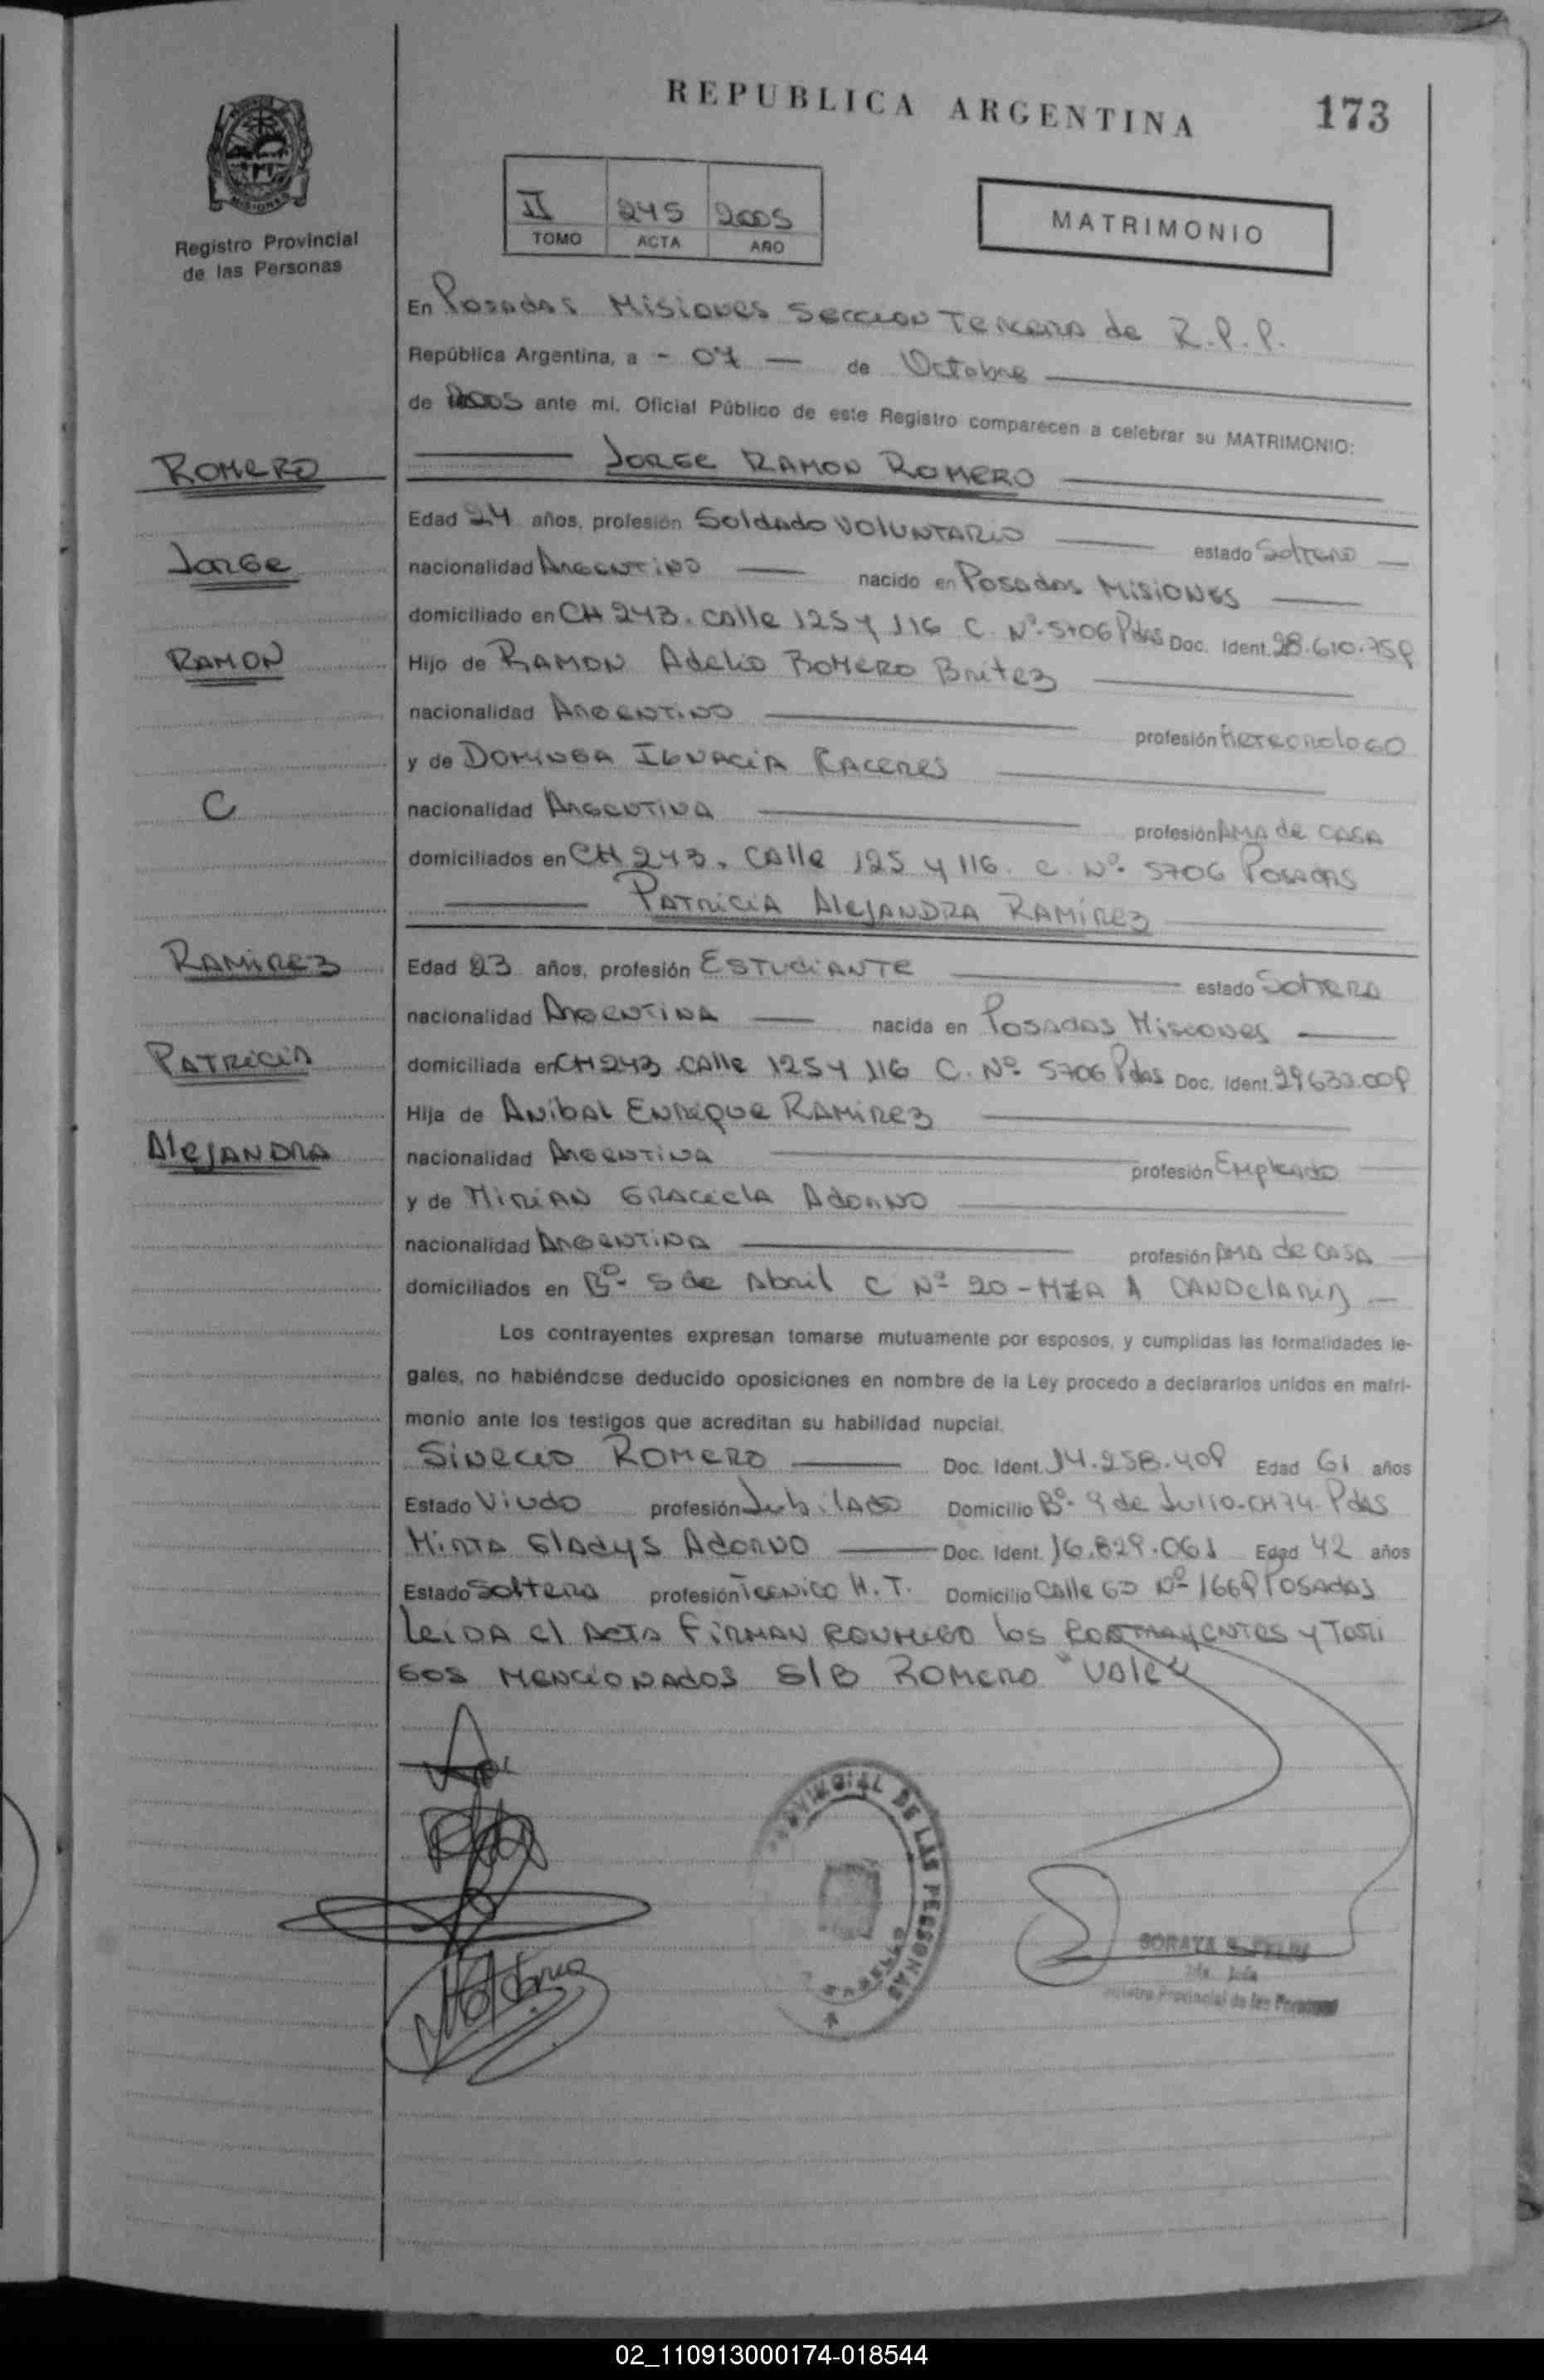 REPUBLICA ARGENTINA
173
MISIONES
Registro Provincial
de las Personas
II 245 2005
TOMO ACTA AÑO
MATRIMONIO
En Posadas Misiones Seccion Tercera de R.P.P.
República Argentina, a - 07 — de Octobre
de 2005 ante mí, Oficial Público de este Registro comparecen a celebrar su MATRIMONIO:
ROMERO
JORGE RAMON ROMERO
Edad 24 años, profesión Soldado VOLUNTARIO estado Soltero
Jorge
nacionalidad Argentino nacido en Posadas MISIONES
domiciliado en CH 243. calle 125 y 116 C. Nº 5706 Pdas Doc. Ident. 28.610.759
RAMON
Hijo de RAMON Adelio ROMERO Britez
nacionalidad Argentino profesión Meteorologo
y de DOMINGA IGNACIA CACERES
C
nacionalidad Argentina profesión AMA de CASA
domiciliados en CH 243. Calle 125 y 116. C. Nº 5706 Posadas
PATRICIA AleJANDRA RAMIREZ
RAMIREZ
Edad 23 años, profesión ESTUDIANTE estado Soltera
nacionalidad ARGENTINA nacida en Posadas Misiones
PATRICIA
domiciliada en CH 243 calle 125 y 116 C. Nº 5706 Pdas Doc. Ident. 29.633.009
Hija de ANIBAL ENRIQUE RAMIREZ
AleJANDRA
nacionalidad ARGENTINA profesión Empleado
y de MIRIAN GRACIELA ADORNO
nacionalidad ARGENTINA profesión AMA de CASA
domiciliados en Bº 5 de Abril C Nº 20 - MZA A CANDELARIA
Los contrayentes expresan tomarse mutuamente por esposos, y cumplidas las formalidades le-
gales, no habiéndose deducido oposiciones en nombre de la Ley procedo a declararlos unidos en matri-
monio ante los testigos que acreditan su habilidad nupcial.
SINECIO ROMERO Doc. Ident. 14.258.409 Edad 61 años
Estado Viudo profesión Jubilado Domicilio Bº 9 de Julio-CH 74. Pdas
MIRTA Gladys ADORNO Doc. Ident. 16.829.061 Edad 42 años
Estado Soltera profesión Tecnico H.T. Domicilio Calle 63 Nº 1669 Posadas
Leida el Acta FIRMAN CONMIGO los CONTRAYENTES y Testi
gos MENCIONADOS S/B ROMERO "VALE"
PROVINCIAL DE LAS PERSONAS
SORAYA
Registro Provincial de las Personas
02_110913000174-018544